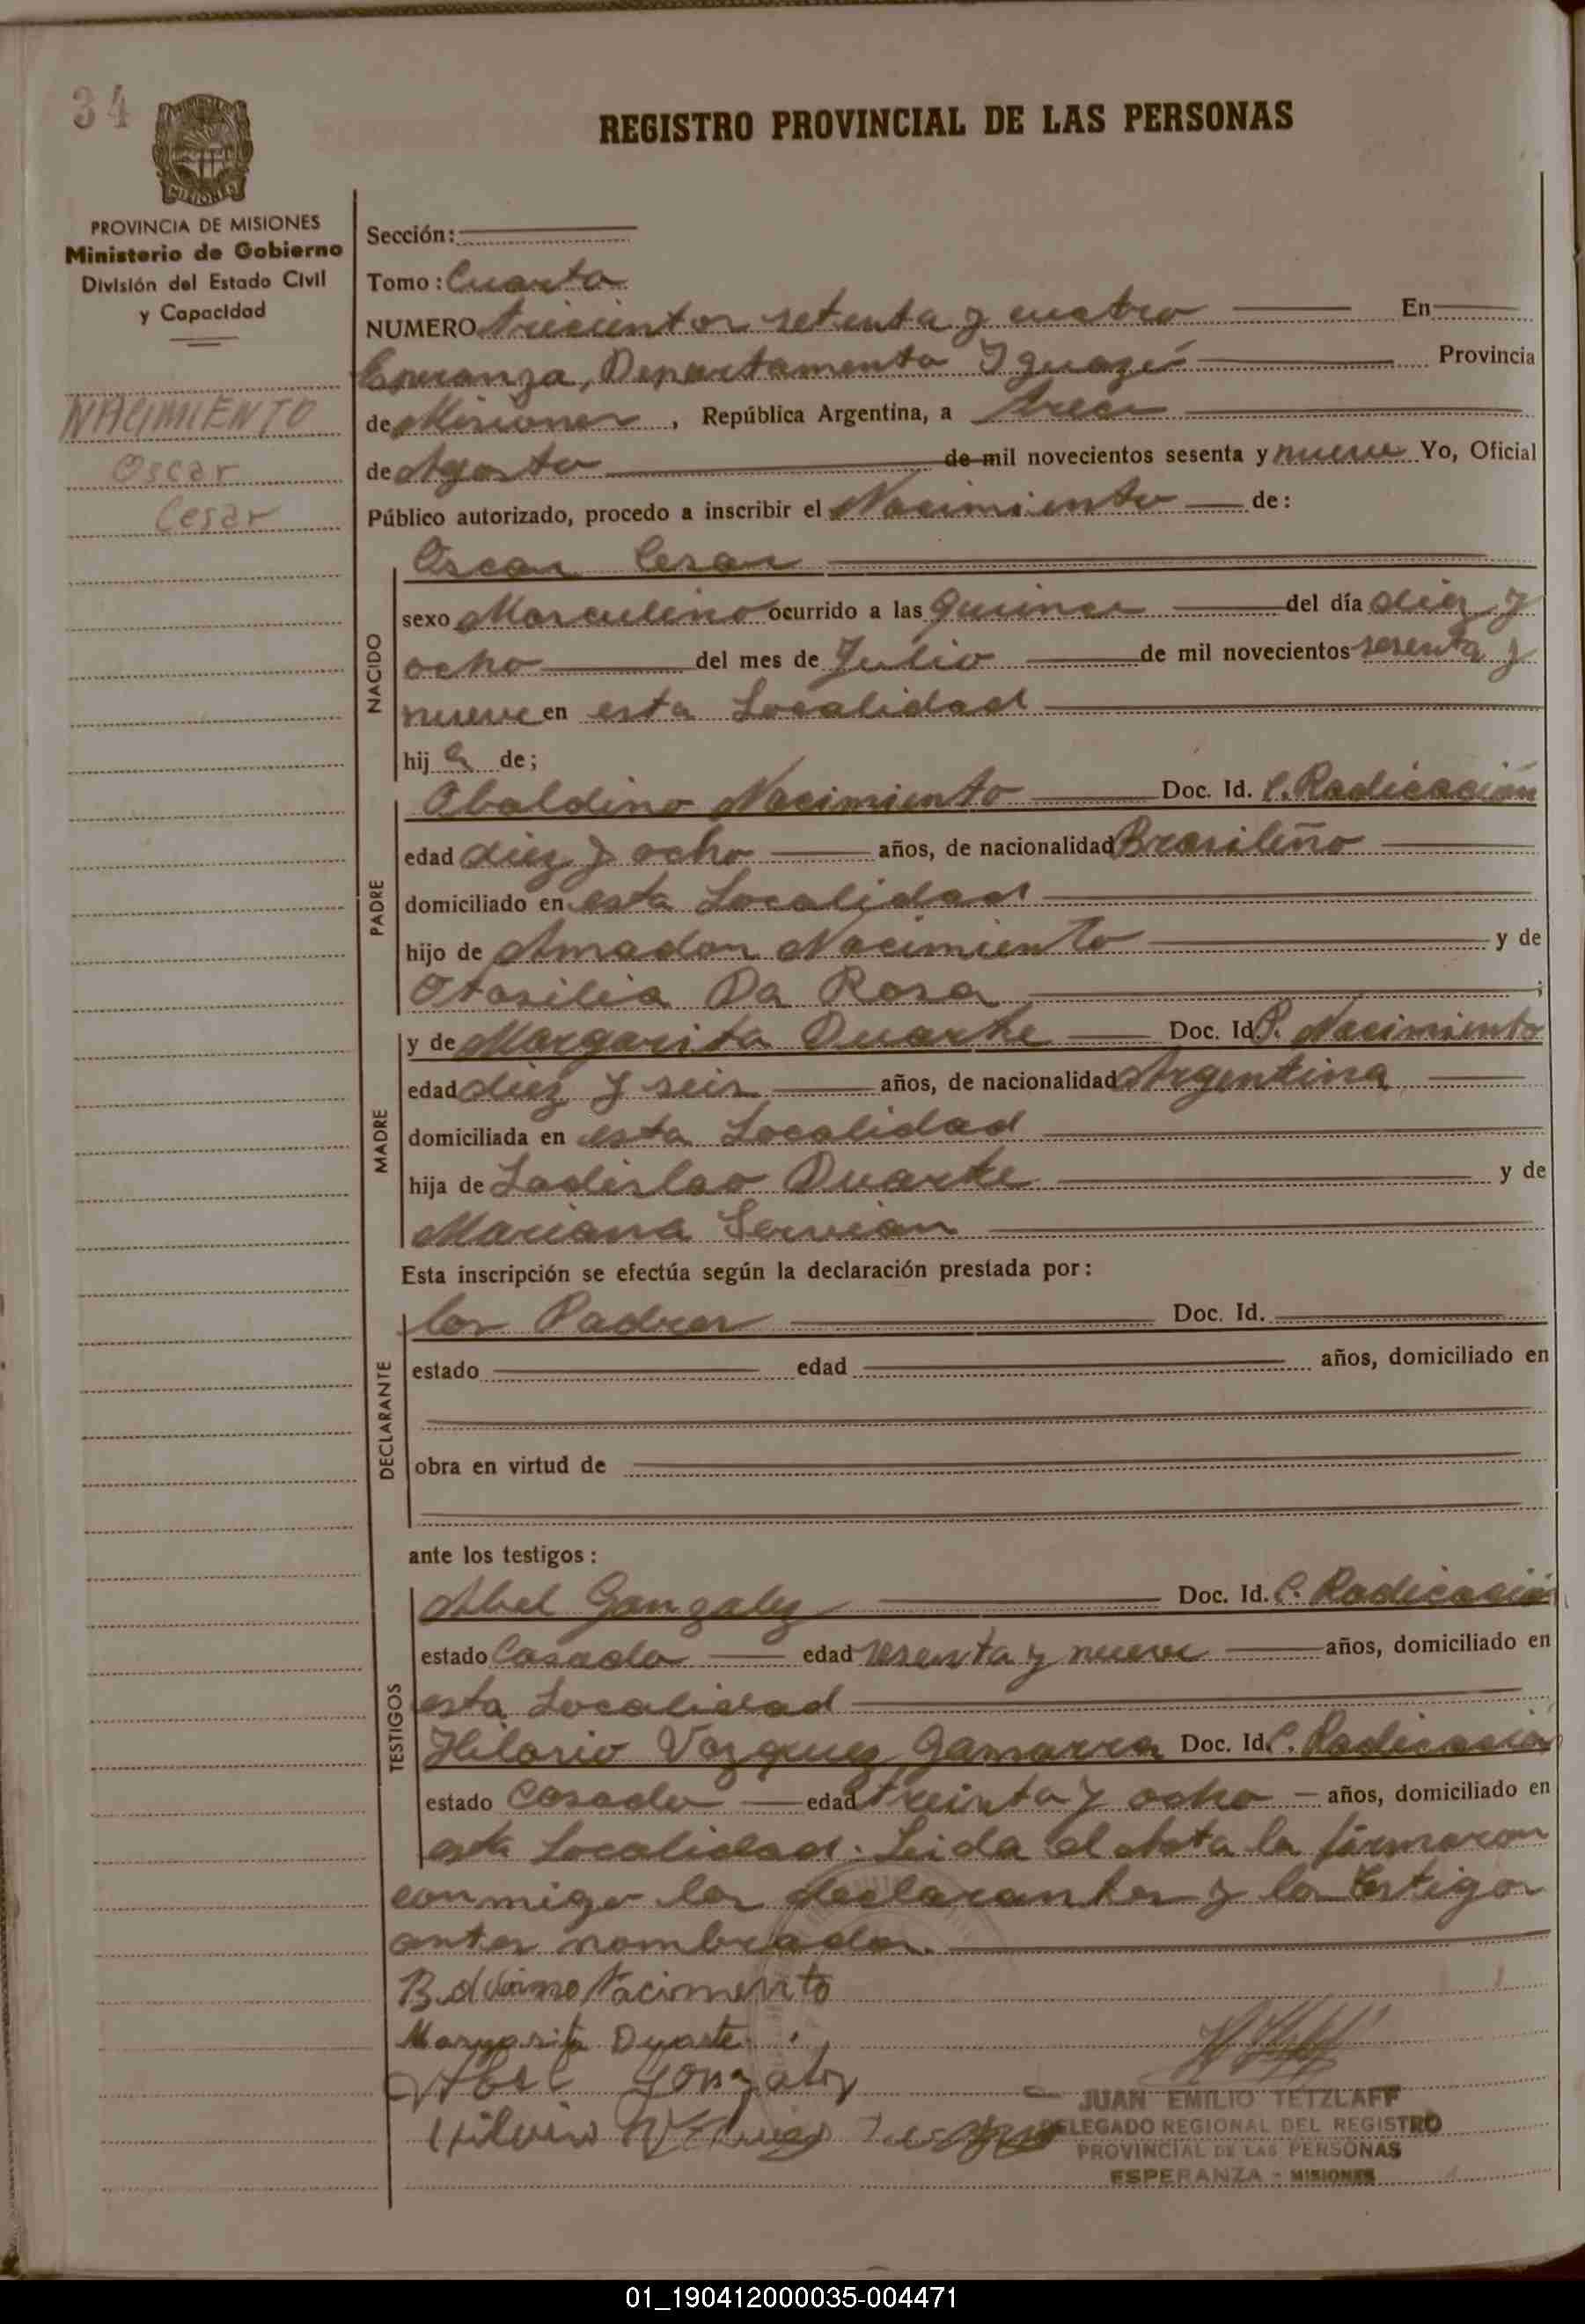 34
REGISTRO PROVINCIAL DE LAS PERSONAS
PROVINCIA DE MISIONES
Ministerio de Gobierno
División del Estado Civil
y Capacidad
NACIMIENTO
Oscar
Cesar
Sección:
Tomo: Cuarto
NUMERO Trecientos setenta y cuatro En
Esperanza, Departamento Iguazú Provincia
de Misiones, República Argentina, a trece
de Agosto de mil novecientos sesenta y nueve Yo, Oficial
Público autorizado, procedo a inscribir el Nacimiento de:
NACIDO
Oscar Cesar
sexo Masculino ocurrido a las quince del día diez y
ocho del mes de Julio de mil novecientos sesenta y
nueve en esta Localidad
hij o de;
PADRE
Obaldino Nacimiento Doc. Id. C. Radicación
edad diez y ocho años, de nacionalidad Brasileño
domiciliado en esta Localidad
hijo de Amador Nacimiento y de
Otasilia Da Rosa ;
MADRE
y de Margarita Duarte Doc. Id. P. Nacimiento
edad diez y seis años, de nacionalidad Argentina
domiciliada en esta Localidad
hija de Ladislao Duarte y de
Mariana Servian
Esta inscripción se efectúa según la declaración prestada por:
DECLARANTE
los Padres Doc. Id.
estado edad años, domiciliado en
obra en virtud de
ante los testigos:
TESTIGOS
Abel Gonzalez Doc. Id. C. Radicación
estado Casado edad sesenta y nueve años, domiciliado en
esta Localidad
Hilario Vazquez Gamarra Doc. Id. C. Radicación
estado Casado edad treinta y ocho años, domiciliado en
esta Localidad. Leida el Acta la firmaron
conmigo los declarantes y los Testigos
antes nombrados.
Nacimento
Margarita Duarte
Abel Gonzalez
JUAN EMILIO TETZLAFF
DELEGADO REGIONAL DEL REGISTRO
PROVINCIAL DE LAS PERSONAS
ESPERANZA - MISIONES
01_190412000035-004471